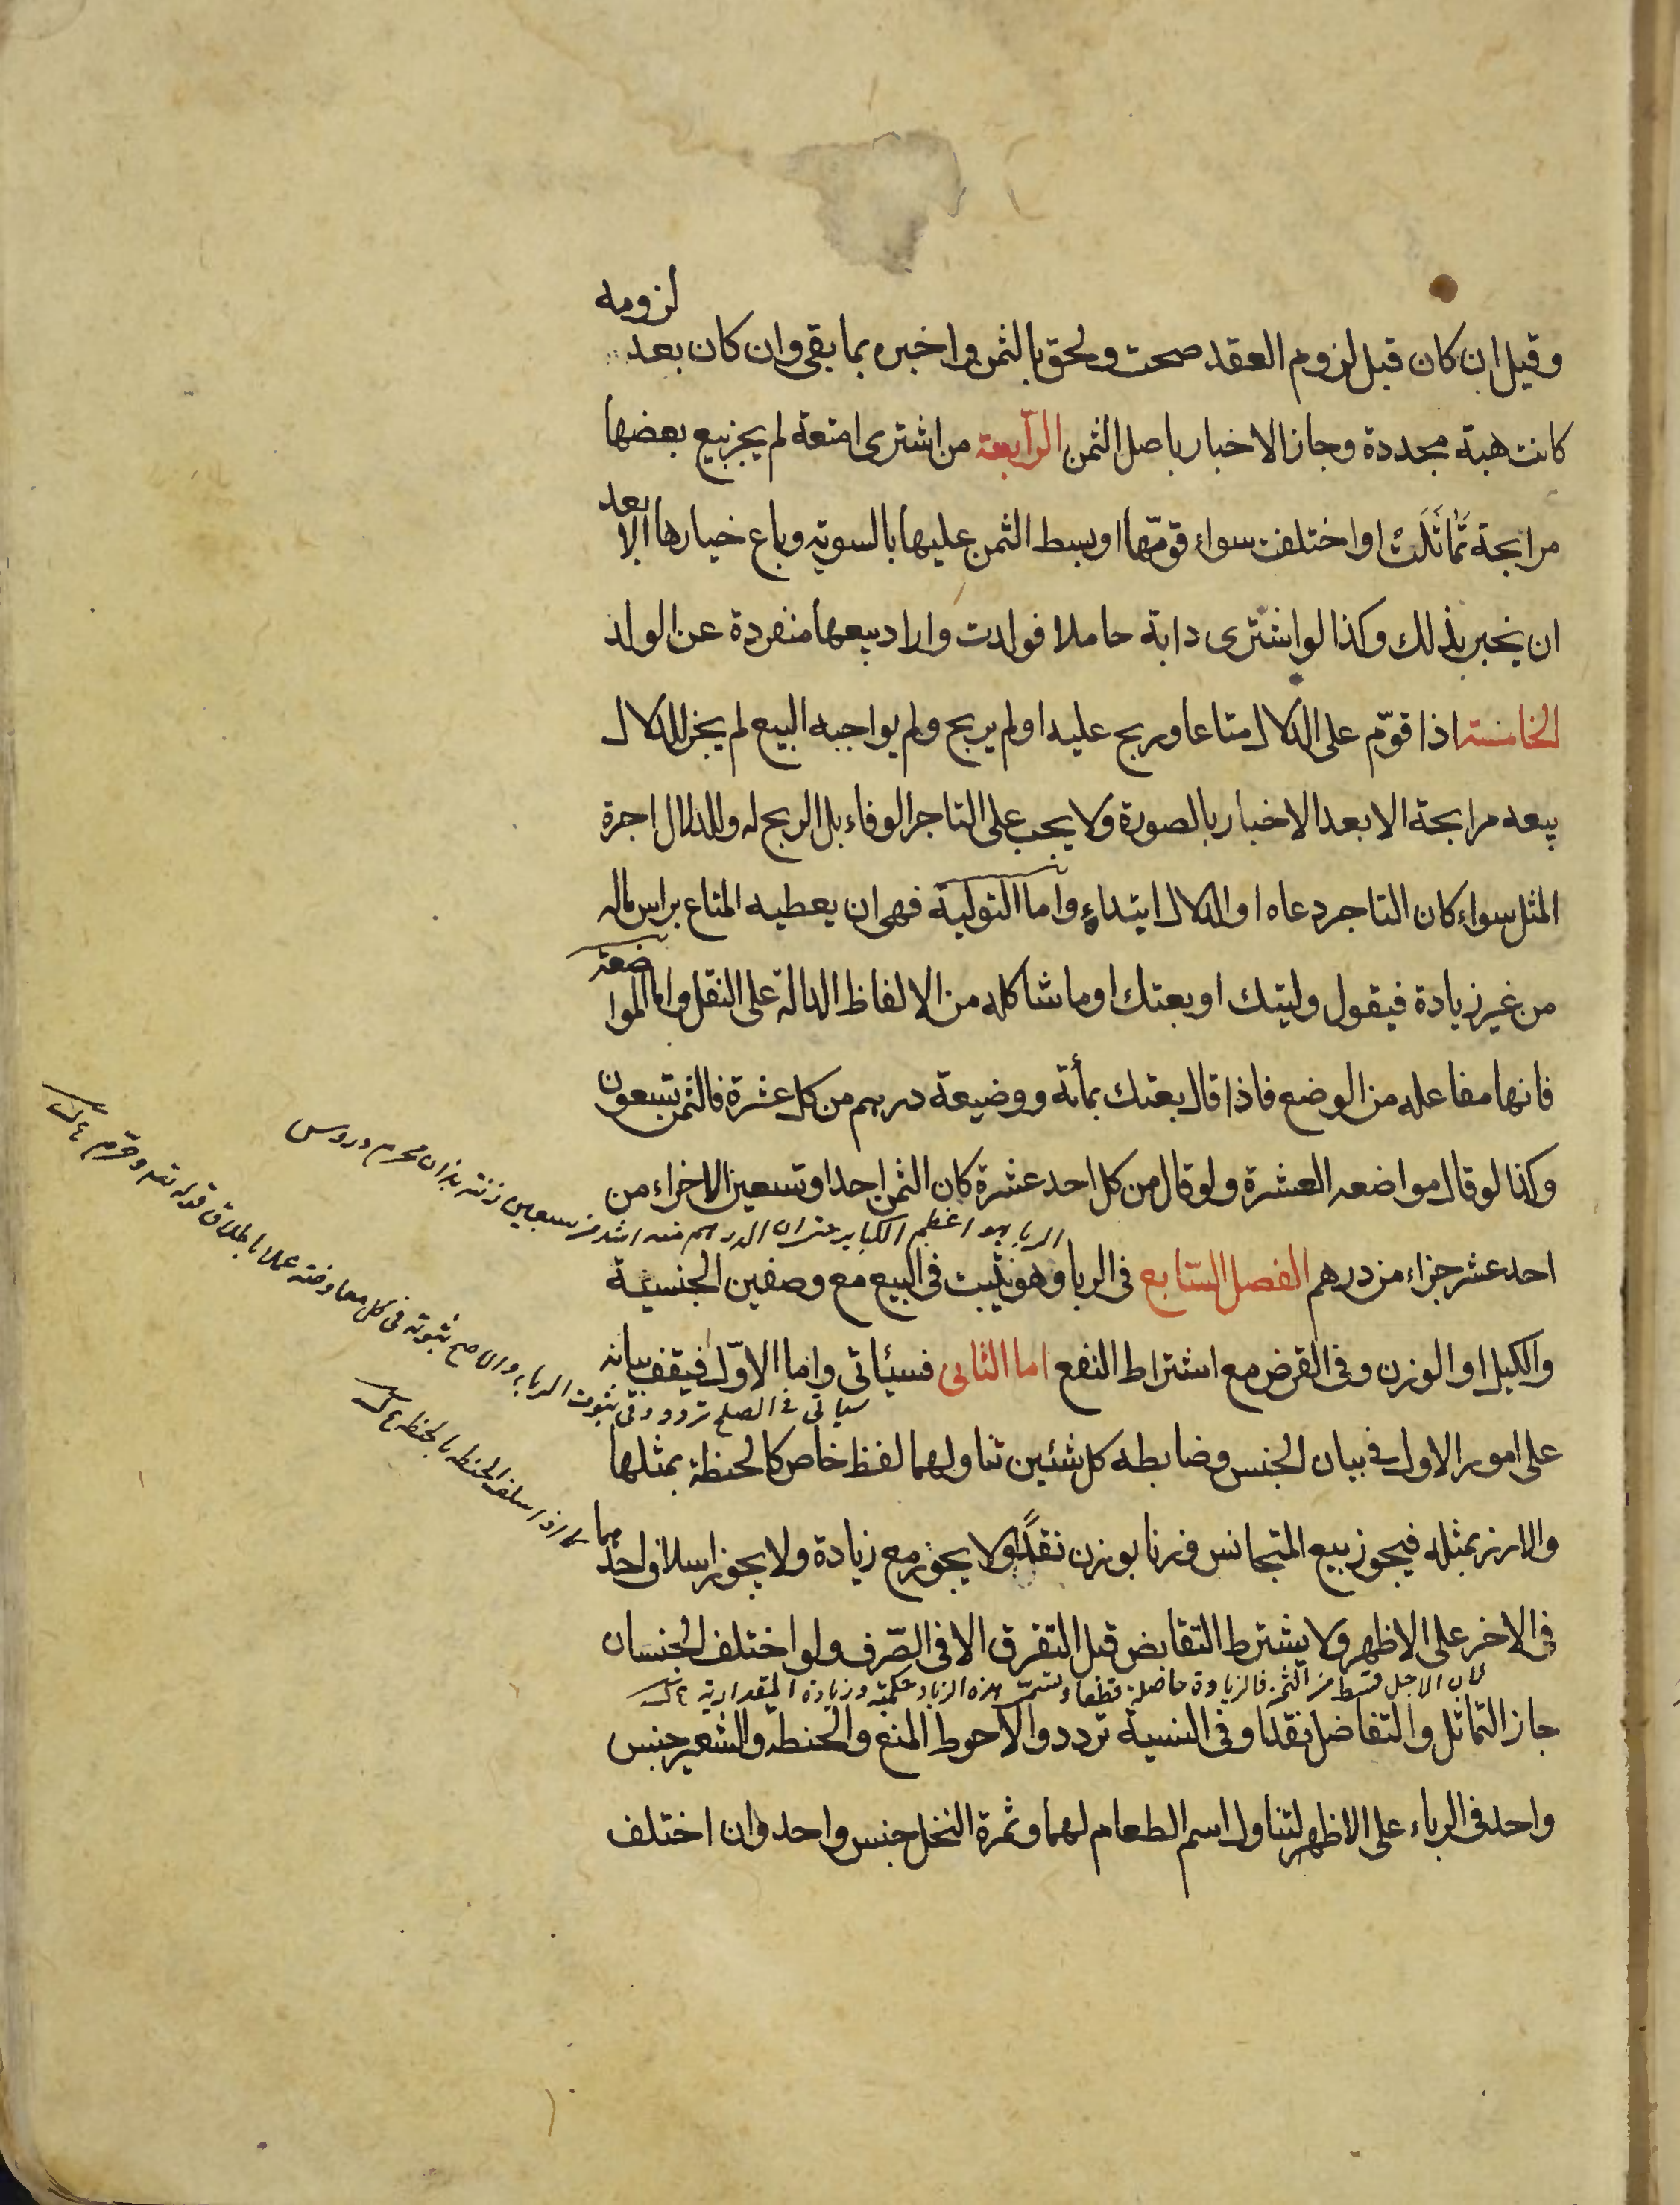 وقيل ان كان قبل لزوم العقد صحت ولحق بالثمن واخبره بما بقى وان كان بعد لزومه
كانت هبة مجددة وجاز الاخبار باصل الثمن الرابعة من اشترى امتعة لم يجز بيع بعضها
مرابحة تَمَاثَلَتْ او اختلفت سواء قوّمها او بسط الثمن عليها بالسويه وباع خيارها الا بعد
ان يخبر بذلك وكذا لو اشترى دابة حاملا فولدت واراد بيعها منفردة عن الولد
الخامسة اذا قوّم على الدلال متاعا وربح عليه او لم يربح ولم يواجبه البيع لم يجز للدلال
بيعه مرابحة الا بعد الاخبار بالصورة ولا يجب على التاجر الوفاء بل الربح له وللدلال اجرة
المثل سواء كان التاجر دعاه او الدلال ابتداءٍ واما التولية فهى ان يعطيه المتاع براس ماله
من غير زيادة فيقول وليتك او بعتك او ما شاكله من الالفاظ الدالة على النقل واما المواضعة
فانها مفاعله من الوضع فاذا قال بعتك بمأئة ووضيعة درهم من كل عشرة فالثمن تسعون
وكذا لو قال مواضعه العشرة ولو قال من كل احد عشرة كان الثمن احدا وتسعين الا جزاء من
الربا هو اعظم الكباير عنه ان الدرهم منه اشد من سبعين زنية بذات محرم
احد عشر جزاء من درهم الفصل السّابع فى الربا وهو يثبت فى البيع مع وصفين الجنسية
والكيل او الوزن وفى القرض مع اشتراط النفع اما الثانى فسيئاتى واما الاوّل فيقف بيانه
سياتى فى الصلح تردد فى ثبوت الربا والاصح ثبوته فى كل معاوضته عملا باطلاق قوله تعه وحرم
على امور الاول فى بيان الجنس وضابطه كل شئين تناولهما لفظ خاص كالحنظة بمثلها
والارز بمثله فيجوز بيع المتجانس وزنا بوزن نقدًا ولا يجوز مع زيادة ولا يجوز اسلاف احدهما
اسلف الحنطه بالحنطه
فى الاخر على الاظهر ولا يشترط التقابض قبل التفرق الا فى الصّرف ولو اختلف الجنسان
لان الاجل قسط من الثمن فالزيادة حاصلة قطعا وتسمّى هذه الزياد حكميّه وزيادة المقداريه
جاز التماثل والتفاضل نقدًا وفى النسية تردد والاحوط المنع والحنطه والشعير جنس
واحد فى الرباء على الاظهر لتناول اسم الطعام لهما وثمرة النخل جنس واحد وان اختلف